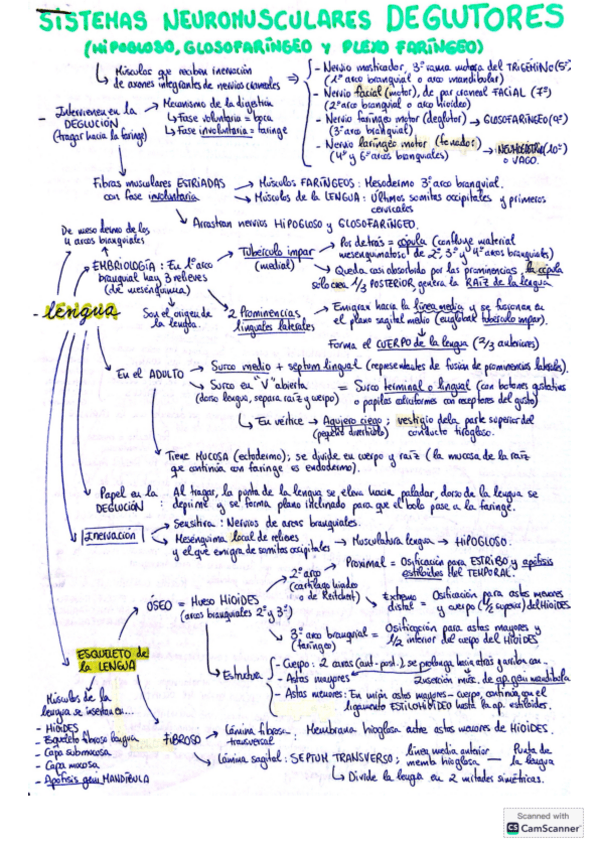 SISTEMAS NEUROMUSCULARES DEGLUTORES
(HIPOGLOSO, GLOSOFARÍNGEO Y PLEXO FARÍNGEO)
Músculos que reciben inervación
de axones integrantes de nervios craneales
- Nervio masticador, 3ª rama motora del TRIGÉMINO (5º)
(1º arco branquial o arco mandibular)
- Nervio facial (motor), de par craneal FACIAL (7º)
(2º arco branquial o arco hioideo)
- Nervio faríngeo motor (deglutor) → GLOSOFARÍNGEO (9º)
(3º arco branquial)
- Nervio laríngeo motor (fonador) → (10º)
(4º y 6º arcos branquiales) o VAGO.
- Intervienen en la
DEGLUCIÓN
(tragar hacia la faringe)
Mecanismo de la digestión
Fase voluntaria = boca
Fase involuntaria = faringe
Fibras musculares ESTRIADAS
con fase involuntaria
→ Músculos FARÍNGEOS: Mesodermo 3º arco branquial.
→ Músculos de la LENGUA: Últimos somitas occipitales y primeros
cervicales
Arrastran nervios HIPOGLOSO y GLOSOFARÍNGEO.
De mesodermo de los
4 arcos branquiales
- lengua
EMBRIOLOGÍA: En 1º arco
branquial hay 3 relieves
(de mesénquima)
Son el origen de
la lengua.
Tubérculo impar
(medial)
Por detrás = cópula (confluye material
mesenquimatoso de 2º, 3º y 4º arcos branquiales)
Queda casi absorbido por las prominencias, la cópula
solo crea 1/3 POSTERIOR, genera la RAÍZ de la lengua
2 Prominencias
linguales laterales
Emigran hacia la línea media y se fusionan en
el plano sagital medio (engloba tubérculo impar).
Forma el CUERPO de la lengua (2/3 anteriores)
En el ADULTO
Surco medio + septum lingual (representantes de fusión de prominencias laterales).
Surco en "V" abierta = Surco terminal o lingual (con botones gustativos
(dorso lengua, separa raíz y cuerpo) o papilas caliciformes con receptores del gusto)
En vértice → Agujero ciego; vestigio de la parte superior del
(pequeño divertículo) conducto tirogloso.
Tiene MUCOSA (ectodermo); se divide en cuerpo y raíz (la mucosa de la raíz
que continúa con faringe es endodermo).
Papel en la DEGLUCIÓN : Al tragar, la punta de la lengua se eleva hacia paladar, dorso de la lengua se
deprime y se forma plano inclinado para que el bolo pase a la faringe.
Inervación
- Sensitiva: Nervios de arcos branquiales.
Mesénquima local de relieves
y el que emigra de somitas occipitales → Musculatura lengua → HIPOGLOSO.
ESQUELETO de
la LENGUA
ÓSEO = Hueso HIOIDES
(arcos branquiales 2º y 3º)
2º arco
(cartílago hioideo
o de Reichert)
Proximal = Osificación para ESTRIBO y apófisis
estiloides del TEMPORAL.
Extremo
distal = Osificación para astas menores
y cuerpo (1/2 superior) del HIOIDES
3º arco branquial =
(faríngeo)
Osificación para astas mayores y
1/2 inferior del cuerpo del HIOIDES
Estructura
- Cuerpo: 2 caras (ant - post.) se prolonga hacia atrás y arriba con -
- Astas mayores Inserción músc. de ap. geni mandíbula
- Astas menores: En unión astas mayores - cuerpo, continúa con el
ligamento ESTILOHIOIDEO hasta la ap. estiloides.
Músculos de la
lengua se insertan en...
- HIOIDES
- Esqueleto fibroso lengua
- Capa submucosa
- Capa mucosa
- Apófisis geni MANDÍBULA
FIBROSO
Lámina fibrosa
transversal : Membrana hioglosa entre astas mayores de HIOIDES.
Lámina sagital: SEPTUM TRANSVERSO; línea media anterior
memb hioglosa — Punta de
la lengua
Divide la lengua en 2 mitades simétricas.
Scanned with
CS CamScanner